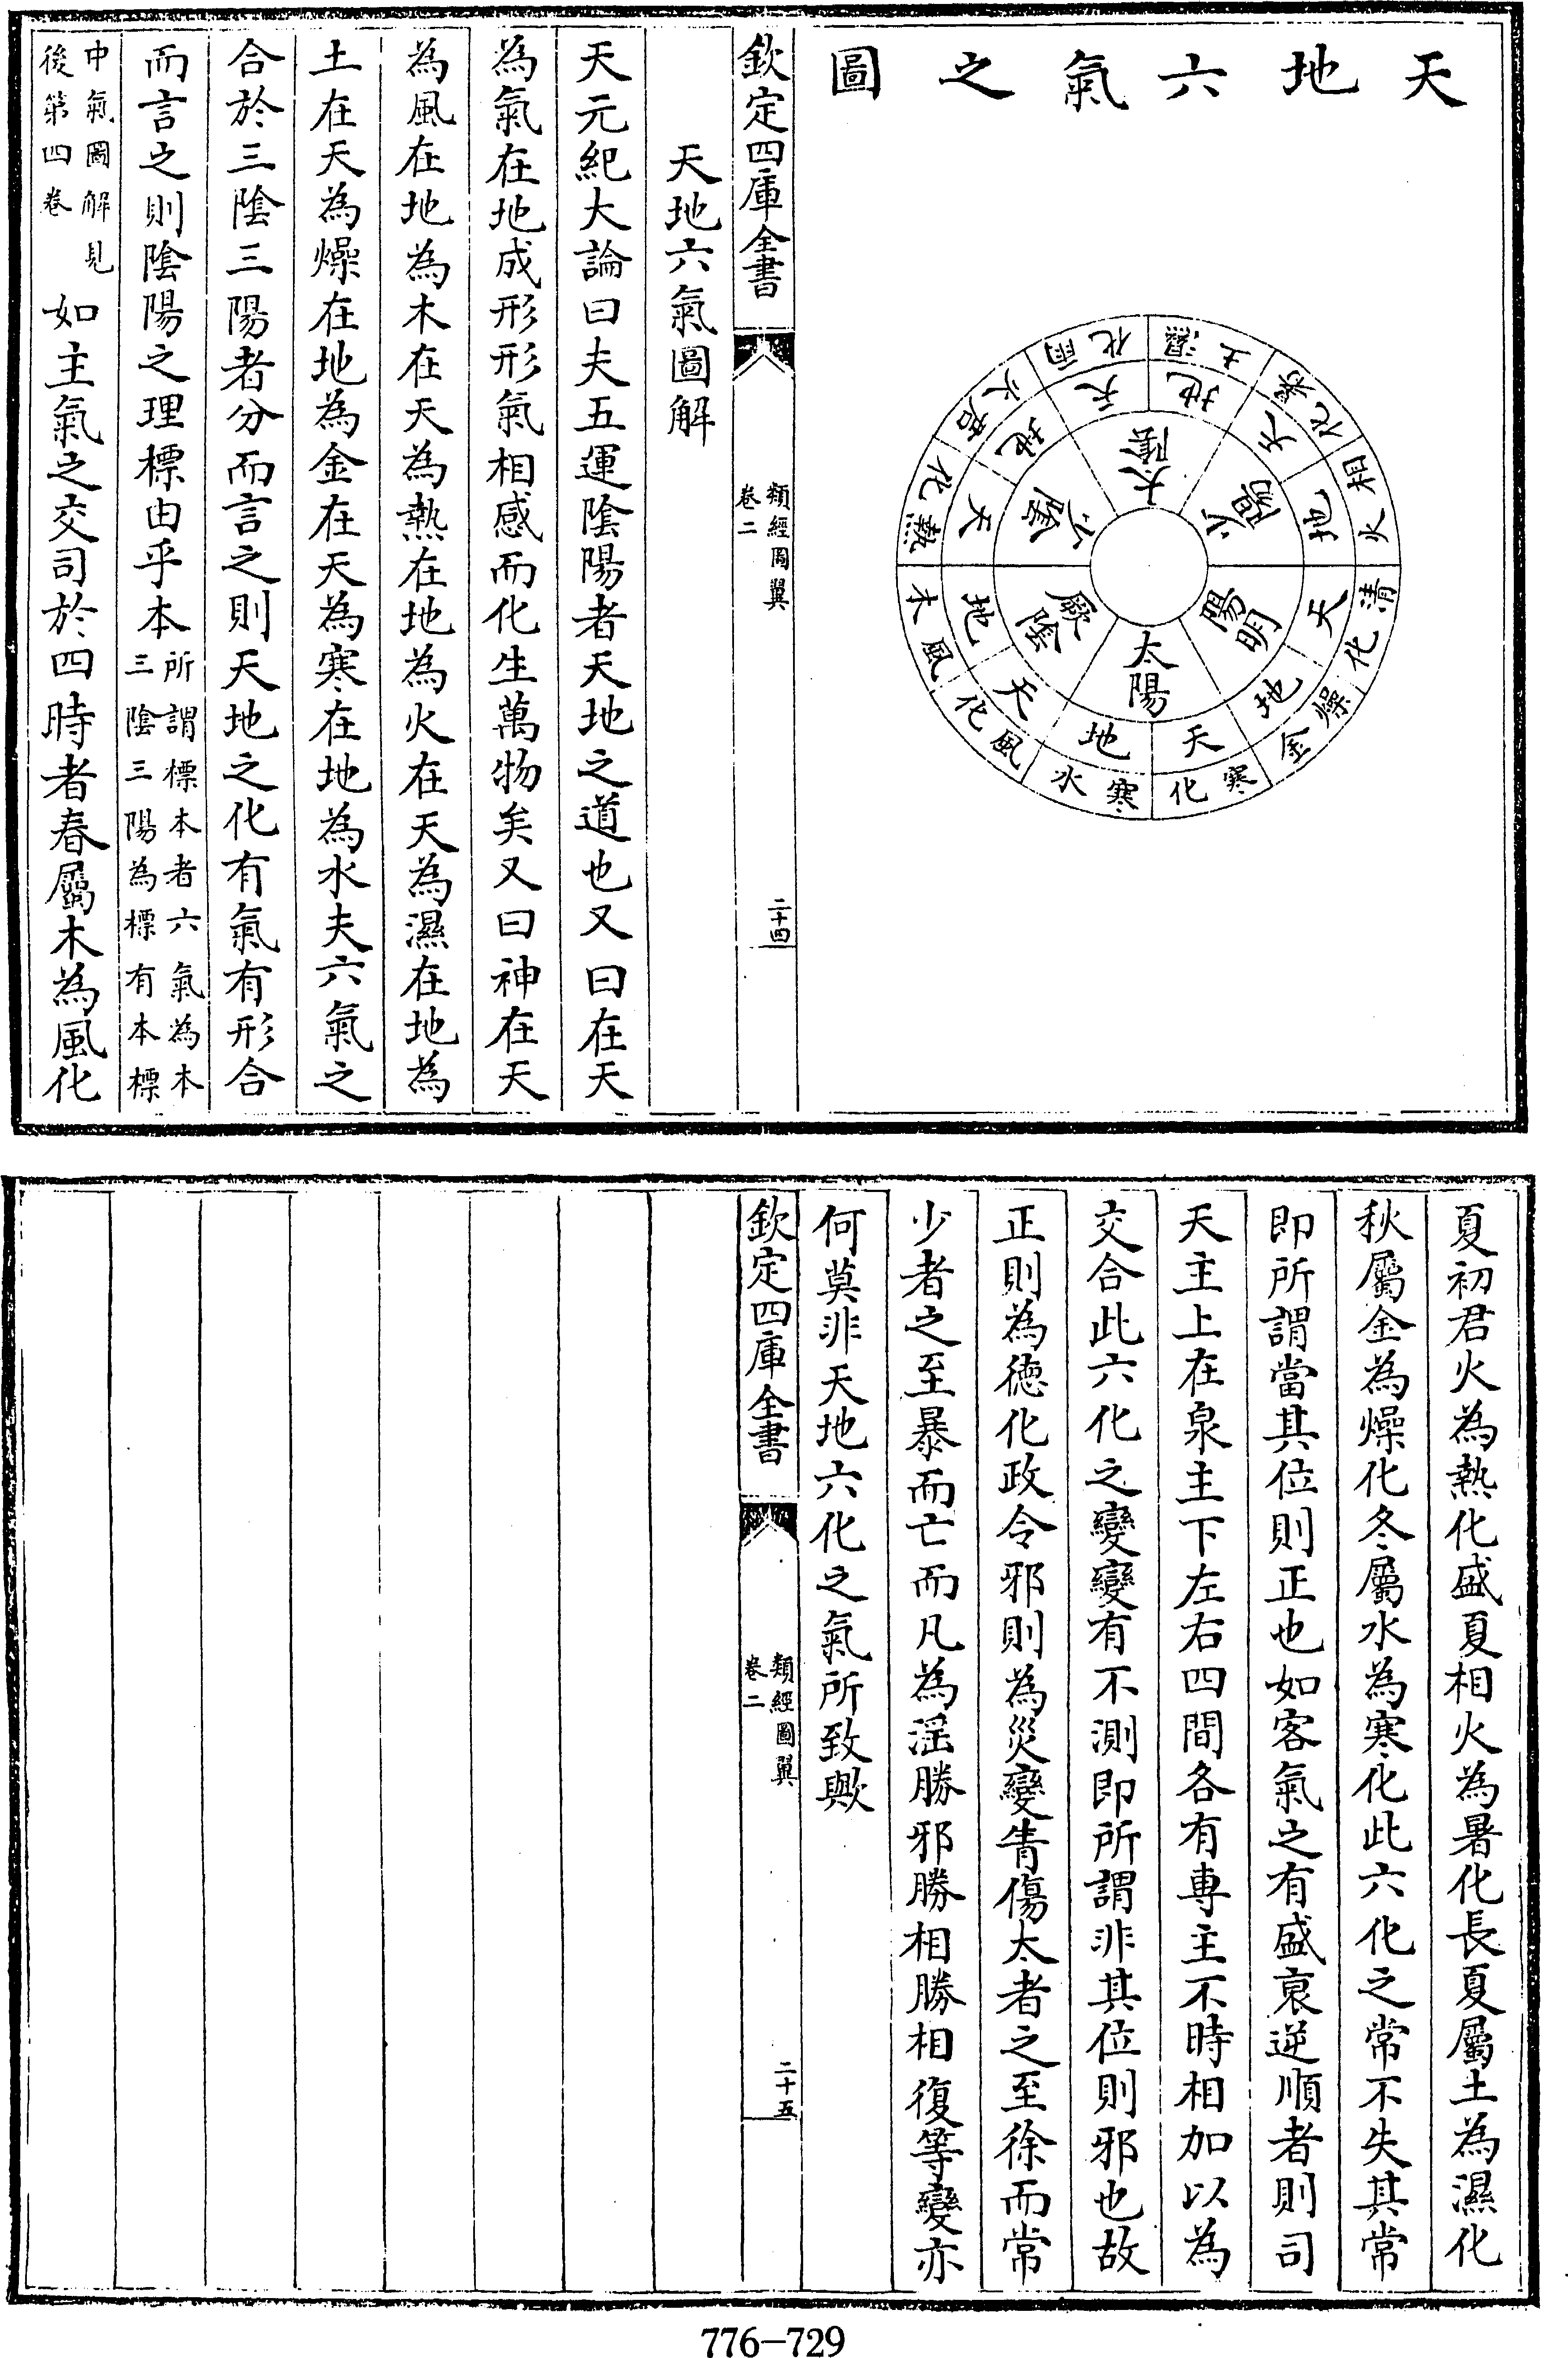 天地六氣之圖
太陰
天
雨化
地
濕土
少陽
天
暑化
地
相火
陽明
天
清化
地
燥金
太陽
天
寒化
地
寒水
厥陰
天
風化
地
風木
少陰
天
熱化
地
君火
欽定四庫全書
類經圖翼
卷二
二十四
天地六氣圖解
天元紀大論曰夫五運陰陽者天地之道也又曰在天
為氣在地成形形氣相感而化生萬物矣又曰神在天
為風在地為木在天為熱在地為火在天為濕在地為
土在天為燥在地為金在天為寒在地為水夫六氣之
合於三陰三陽者分而言之則天地之化有氣有形合
而言之則陰陽之理標由乎本所謂標本者六氣為本
三陰三陽為標有本標
中氣圖解見
後第四卷
如主氣之交司於四時者春屬木為風化
夏初君火為熱化盛夏相火為暑化長夏屬土為濕化
秋屬金為燥化冬屬水為寒化此六化之常不失其常
即所謂當其位則正也如客氣之有盛衰逆順者則司
天主上在泉主下左右四間各有專主不時相加以為
交合此六化之變變有不測即所謂非其位則邪也故
正則為德化政令邪則為災變眚傷太者之至徐而常
少者之至暴而亡而凡為淫勝邪勝相勝相復等變亦
何莫非天地六化之氣所致歟
欽定四庫全書
類經圖翼
卷二
二十五
776-729